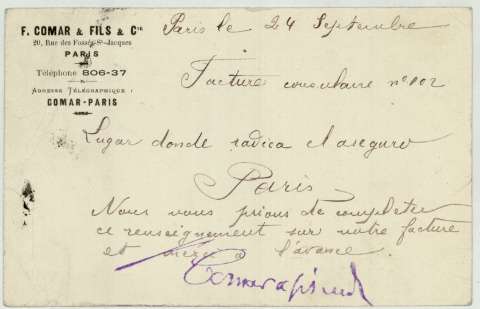 F. COMAR & FILS & Cie
20, Rue des Fossés-St-Jacques
PARIS
Téléphone 806-37
ADRESSE TÉLÉGRAPHIQUE :
COMAR-PARIS
Paris le 24 Septembre
Facture consulaire n° 102
Lugar donde radica el aseguro
Paris
Nous vous prions de compléter
ce renseignement sur notre facture
et merci à l'avance